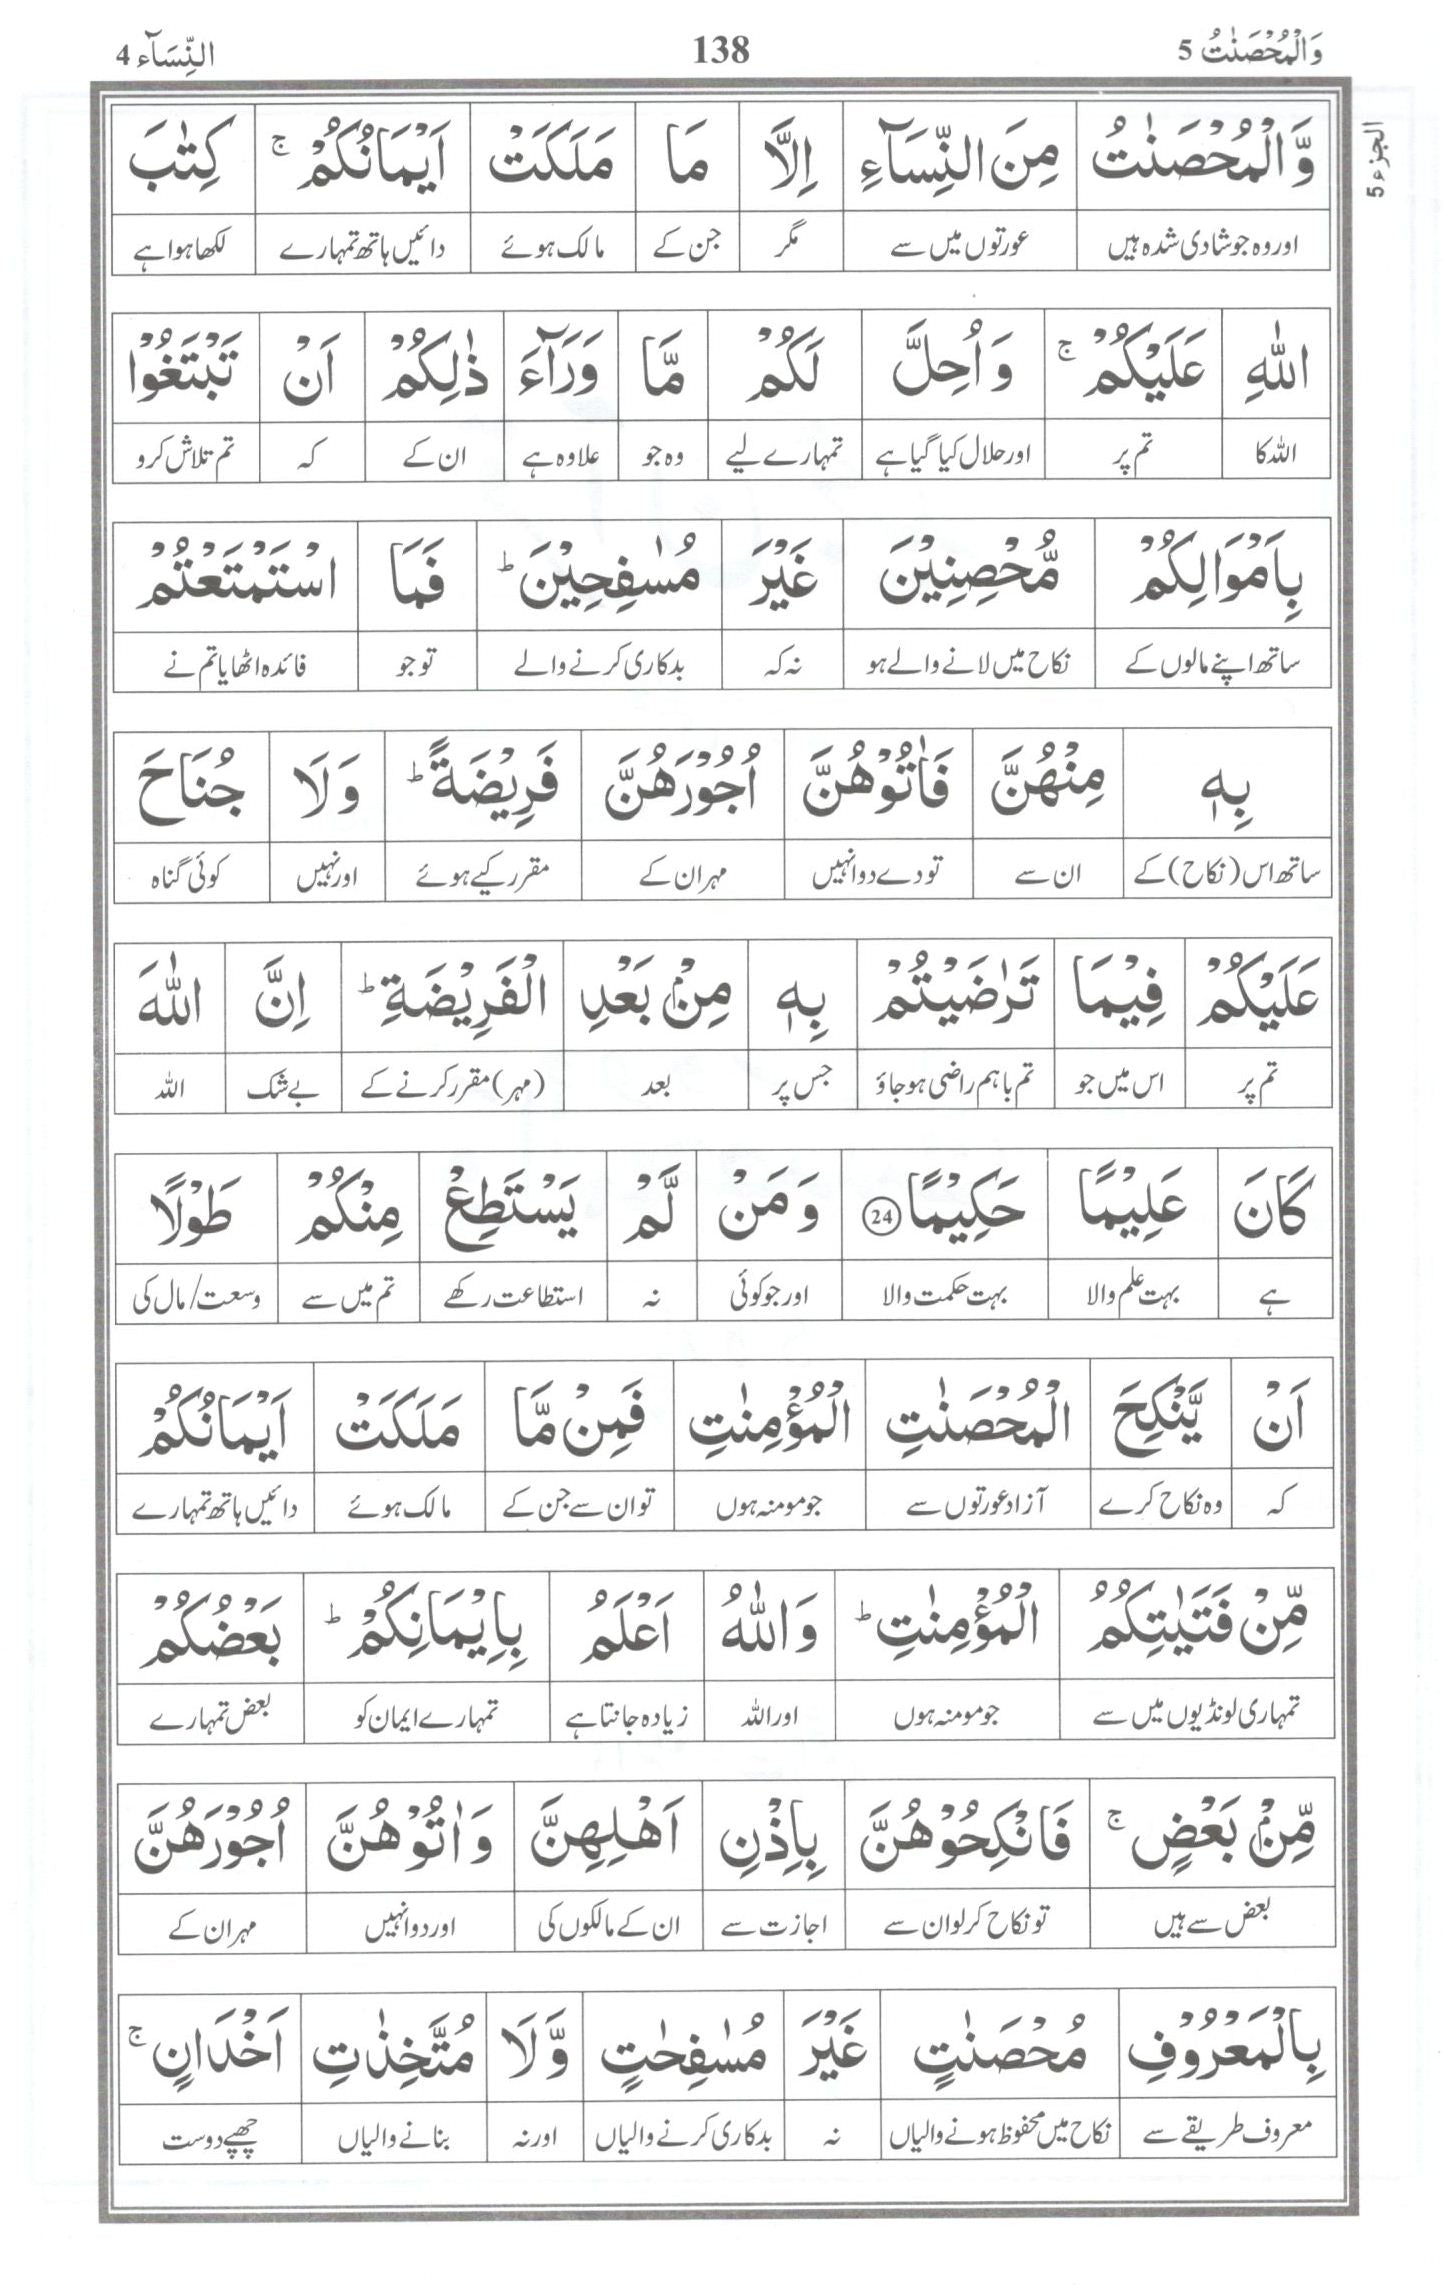 وَالْمُحْصَنٰتُ 5 138 النِّسَآء 4
الجزء 5
وَّالْمُحْصَنٰتُ مِنَ النِّسَآءِ اِلَّا مَا مَلَكَتْ اَيْمَانُكُمْ ۚ كِتٰبَ
اور وہ جو شادی شدہ ہیں عورتوں میں سے مگر جن کے مالک ہوئے دائیں ہاتھ تمہارے لکھا ہوا ہے
اللّٰهِ عَلَيْكُمْ ۚ وَاُحِلَّ لَكُمْ مَّا وَرَآءَ ذٰلِكُمْ اَنْ تَبْتَغُوْا
اللہ کا تم پر اور حلال کیا گیا ہے تمہارے لیے وہ جو علاوہ ہے ان کے کہ تم تلاش کرو
بِاَمْوَالِكُمْ مُّحْصِنِيْنَ غَيْرَ مُسٰفِحِيْنَ ؕ فَمَا اسْتَمْتَعْتُمْ
ساتھ اپنے مالوں کے نکاح میں لانے والے ہو نہ کہ بدکاری کرنے والے تو جو فائدہ اٹھایا تم نے
بِهٖ مِنْهُنَّ فَاٰتُوْهُنَّ اُجُوْرَهُنَّ فَرِيْضَةً ؕ وَلَا جُنَاحَ
ساتھ اس (نکاح) کے ان سے تو دے دو انہیں مہر ان کے مقرر کیے ہوئے اور نہیں کوئی گناہ
عَلَيْكُمْ فِيْمَا تَرٰضَيْتُمْ بِهٖ مِنْۢ بَعْدِ الْفَرِيْضَةِ ؕ اِنَّ اللّٰهَ
تم پر اس میں جو تم باہم راضی ہو جاؤ جس پر بعد (مہر) مقرر کرنے کے بے شک اللہ
كَانَ عَلِيْمًا حَكِيْمًا 24 وَمَنْ لَّمْ يَسْتَطِعْ مِنْكُمْ طَوْلًا
ہے بہت علم والا بہت حکمت والا اور جو کوئی نہ استطاعت رکھے تم میں سے وسعت/مال کی
اَنْ يَّنْكِحَ الْمُحْصَنٰتِ الْمُؤْمِنٰتِ فَمِنْ مَّا مَلَكَتْ اَيْمَانُكُمْ
کہ وہ نکاح کرے آزاد عورتوں سے جو مومنہ ہوں تو ان سے جن کے مالک ہوئے دائیں ہاتھ تمہارے
مِّنْ فَتَيٰتِكُمُ الْمُؤْمِنٰتِ ؕ وَاللّٰهُ اَعْلَمُ بِاِيْمَانِكُمْ ؕ بَعْضُكُمْ
تمہاری لونڈیوں میں سے جو مومنہ ہوں اور اللہ زیادہ جانتا ہے تمہارے ایمان کو بعض تمہارے
مِّنْۢ بَعْضٍ ۚ فَانْكِحُوْهُنَّ بِاِذْنِ اَهْلِهِنَّ وَاٰتُوْهُنَّ اُجُوْرَهُنَّ
بعض سے ہیں تو نکاح کرلو ان سے اجازت سے ان کے مالکوں کی اور دو انہیں مہر ان کے
بِالْمَعْرُوْفِ مُحْصَنٰتٍ غَيْرَ مُسٰفِحٰتٍ وَّلَا مُتَّخِذٰتِ اَخْدَانٍ ۚ
معروف طریقے سے نکاح میں محفوظ ہونے والیاں نہ بدکاری کرنے والیاں اور نہ بنانے والیاں چھپے دوست